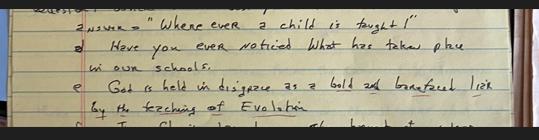 answer = "Where ever a child is taught!"
d Have you ever noticed what has taken place
in our schools.
e God is held in disgrace as a bold and barefaced liar
by the teaching of Evolution